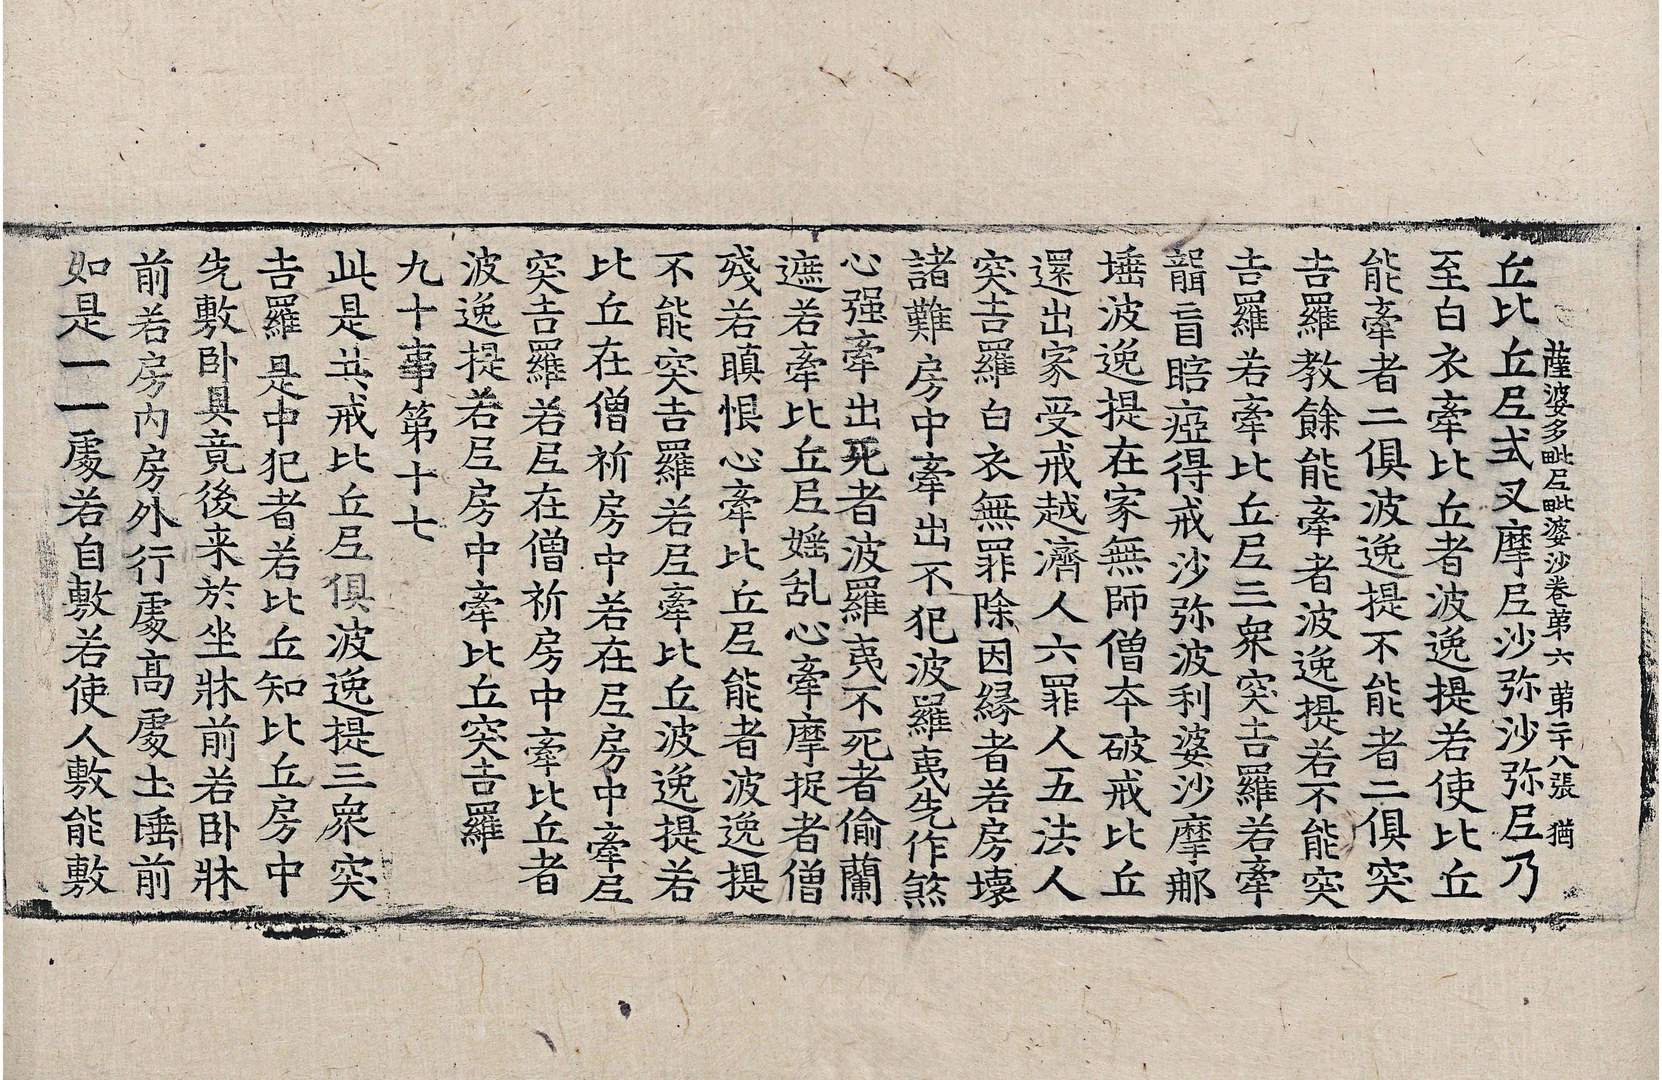 薩婆多毗尼毗婆沙卷第六 第二十八張 猶
丘比丘尼式叉摩尼沙弥沙弥尼乃
至白衣牽比丘者波逸提若使比丘
能牽者二俱波逸提不能者二俱突
吉羅教餘能牽者波逸提若不能突
吉羅若牽比丘尼三衆突吉羅若牽
聾盲瞎瘂得戒沙弥波利婆沙摩那
埵波逸提在家無師僧夲破戒比丘
還出家受戒越濟人六罪人五法人
突吉羅白衣無罪除因縁者若房壞
諸難房中牽出不犯波羅夷先作煞
心强牽出死者波羅夷不死者偷蘭
遮若牽比丘尼婬乱心牽摩捉者僧
殘若瞋恨心牽比丘尼能者波逸提
不能突吉羅若尼牽比丘波逸提若
比丘在僧祈房中若在尼房中牽尼
突吉羅若尼在僧祈房中牽比丘者
波逸提若尼房中牽比丘突吉羅
九十事第十七
此是共戒比丘尼俱波逸提三衆突
吉羅是中犯者若比丘知比丘房中
先敷卧具竟後来於坐牀前若卧牀
前若房内房外行處高處土埵前
如是一一處若自敷若使人敷能敷